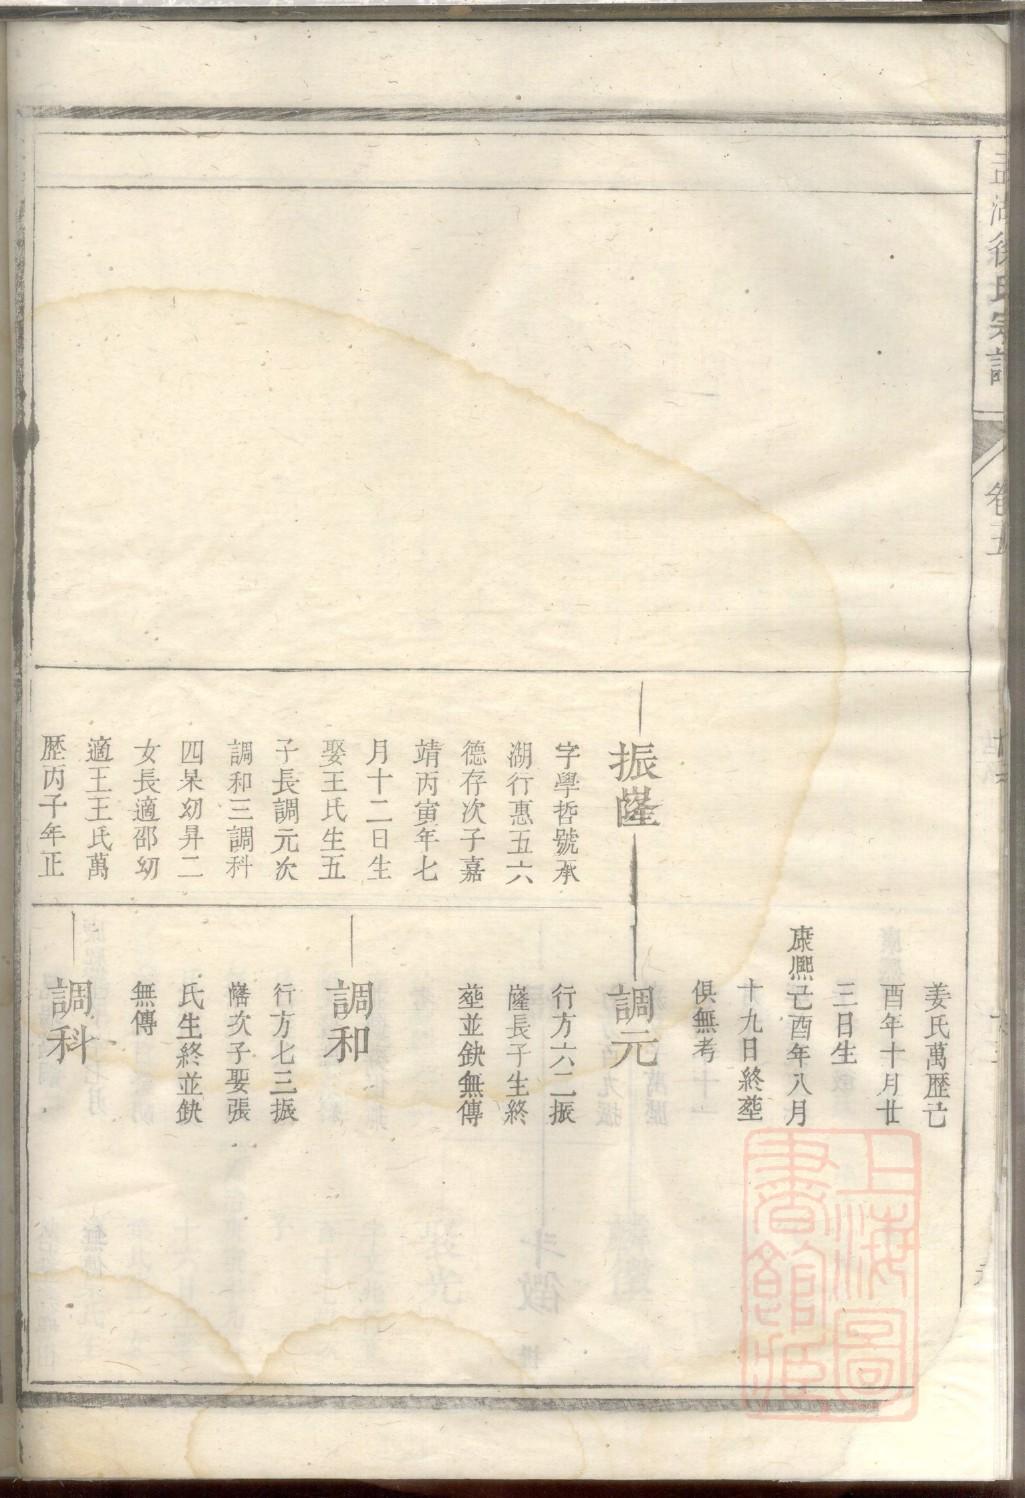 湖徐氏宗譜
卷五
姜氏萬歷己
酉年十月廿
三日生
康熙己酉年八月
十九日終塟
俱無考
振隆
字學哲號承
湖行惠五六
德存次子嘉
靖丙寅年七
月十二日生
娶王氏生五
子長調元次
調和三調科
四杲幼昇二
女長適邵幼
適王王氏萬
歷丙子年正
調元
行方六二振
隆長子生終
塟並缺無傳
調和
行方七三振
隆次子娶張
氏生終並缺
無傳
調科
上海圖
書館藏